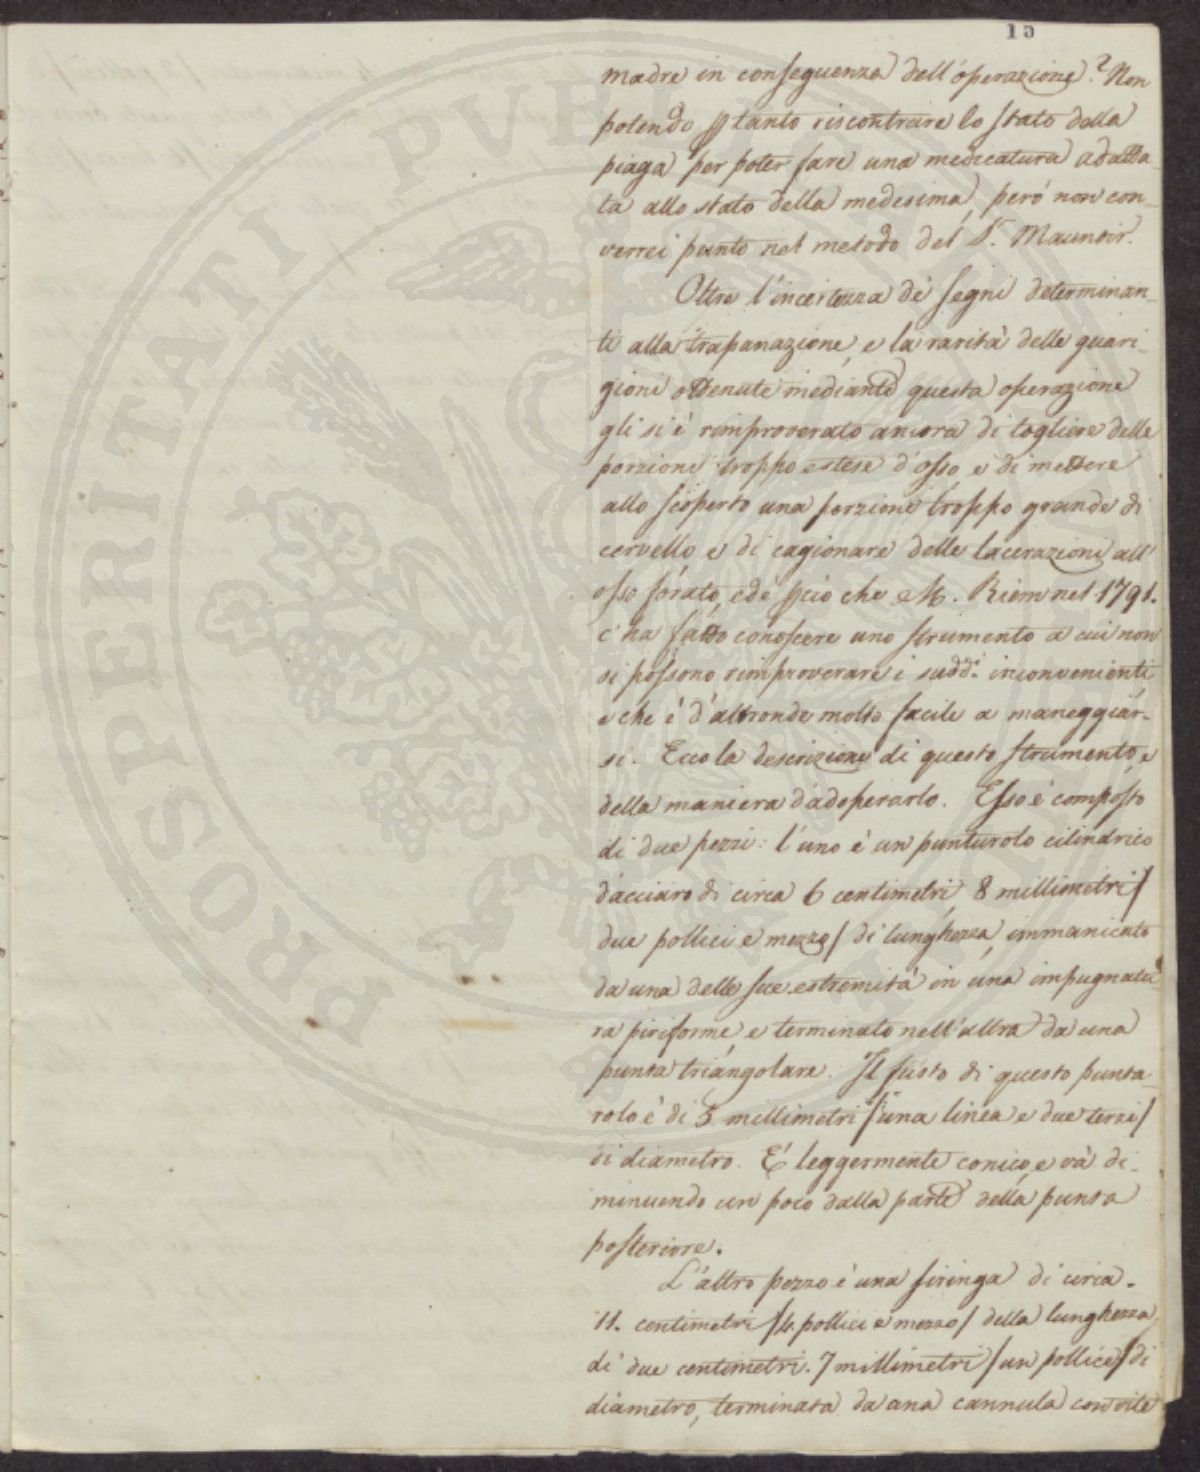 15
madre in conseguenza dell'operazione? Non
potendo p tanto riscontrare lo stato della
piaga per poter fare una medicatura adatta-
ta allo stato della medesima, però non con-
verrei punto nel metodo del S.r Maunoir.
Oltre l'incertezza de' segni determinan-
ti alla trapanazione, e la rarità delle guari-
gioni ottenute mediante questa operazione
gli si è rimproverato ancora di togliere delle
porzioni troppo estese d'osso, e di mettere
allo scoperto una porzione troppo grande di
cervello, e di cagionare delle lacerazioni all'
osso forato, ed è p ciò che M. Riem nel 1791.
c'ha fatto conoscere uno strumento a cui non
si possono rimproverare i sudd.i inconvenienti
e che è d'altronde molto facile a maneggiar-
si. Ecco la descrizione di questo strumento, e
della maniera d'adoperarlo. Esso è composto
di due pezzi: l'uno è un punturolo cilindrico
d'acciaro di circa 6 centimetri, 8 millimetri/
due pollici e mezzo/ di lunghezza, immanicato
da una delle sue estremità in una impugnatu-
ra piriforme, e terminato nell'altra da una
punta triangolare. Il fusto di questo punta-
rolo è di 5 millimetri /una linea e due terzi/
di diametro. E' leggermente conico, e và di-
minuendo un poco dalla parte della punta
posteriore.
L'altro pezzo è una siringa di circa.
11. centimetri /4 pollici e mezzo/ della lunghezza
di due centimetri. 7 millimetri /un pollice/ di
diametro, terminata da una cannula con vite
PROSPERITATI PUBLI